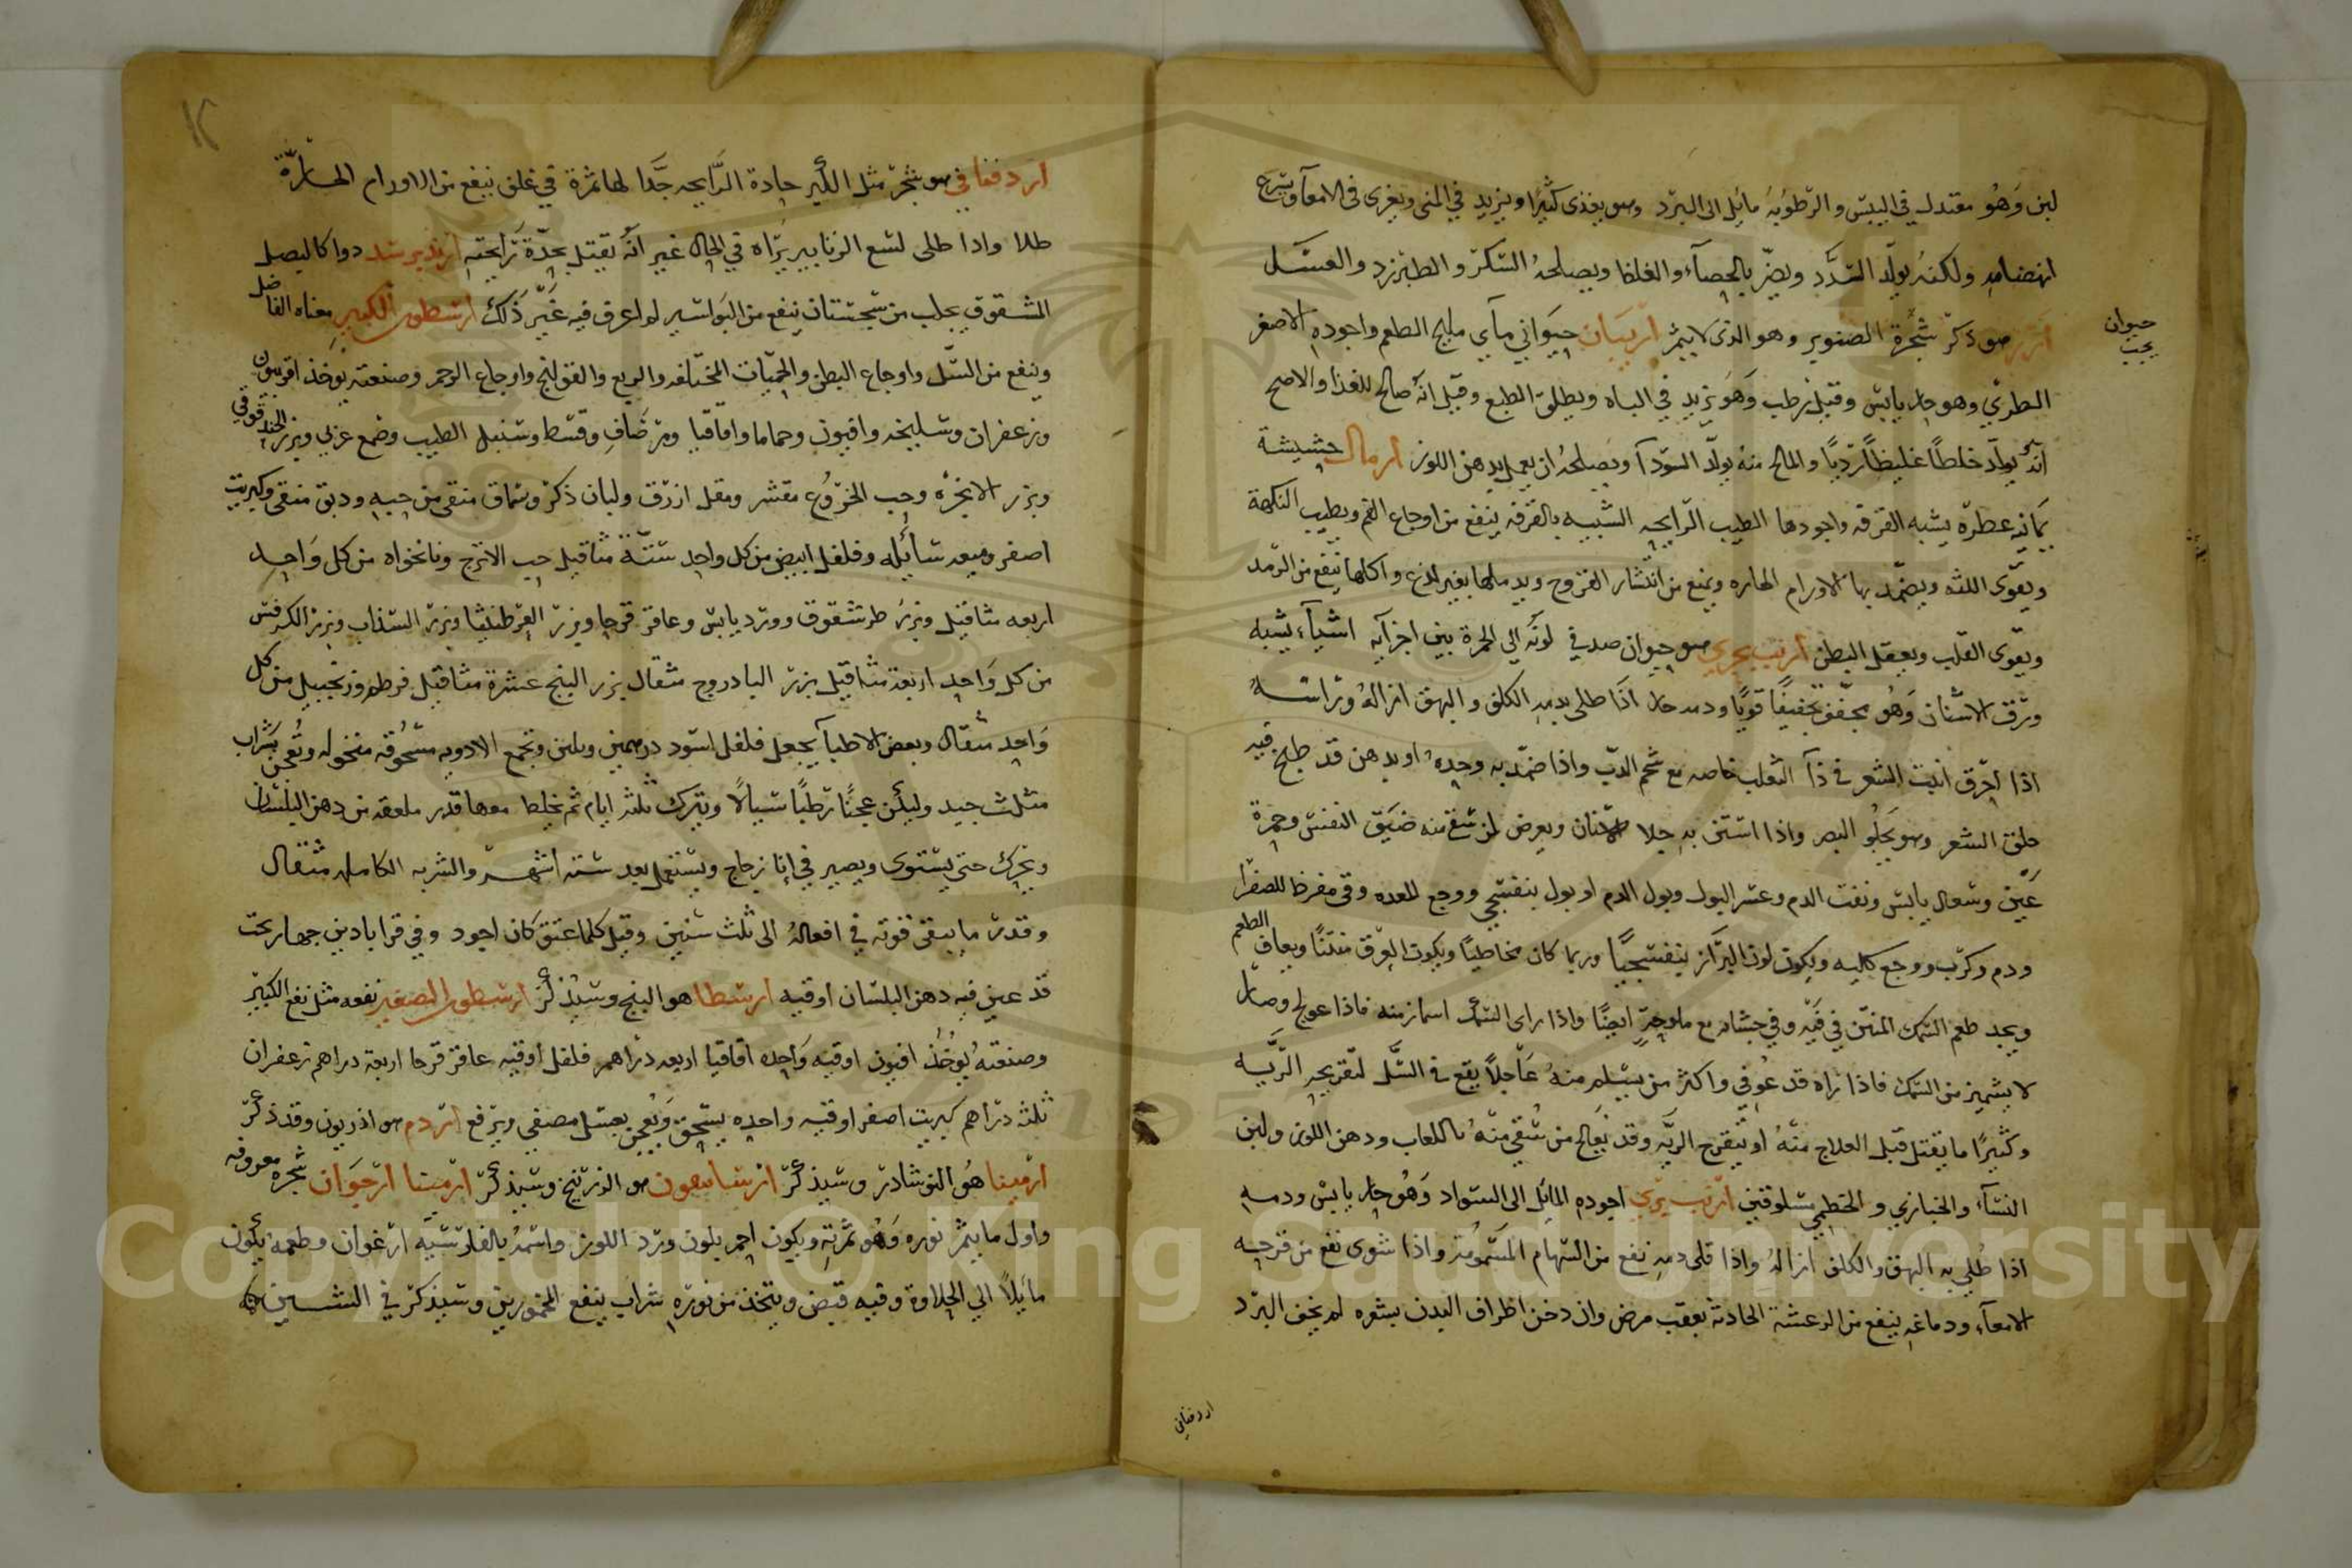 لبن وَهُو معتدل في اليبس والرطوبة مايل الى البرد وهو يغذى كثيرًا ويزيد في المنى ويغرى فى الامعآ ويسرع
انهضامه ولكنه يولّد السدَد ويضرّ بالحصآء والغلظا ويصلحهُ السكرّ والطبرزد والعسَل
ارز هو ذكر شجرة الصنوبر وهو الذى لا يثمر اربيان حيَوانى مآي مليح الطعم واجوده الاصغر
حيوان
يجب
الطرىّ وهو حار يابس وقيل رطب وَهو يزيد في الباه ويطلق الطبع وقيل انه صالح للغذا والاصح
انّه يولّد خلطًا غليظًا رديًا والمالح منه يولّد السودآ ويصلحه ان يعمل بدهن اللوز ارمال حشيشة
يمانية عطرة يشبه القرفه واجودها الطيب الرّايحه الشبيه بالقرفه ينفع من اوجاع الفم ويطيب النكهة
ويقوّى اللثه ويضمّد بها الاورام الحاره ويمنع من انتشار القروح ويدملها بغير لذع واكلها ينفع من الرّمد
ويقوّى القلب ويعقل البطن ارنب بحري هو حيوان صدفي لونه الى الحمرة بين اجزآيه اشيآء يشبه
ورق الاشنان وَهُو يجفّف تجفيفًا قويًا ودمه حار اذا طلى بدمه الكلف والبهق ازالهُ وراسهُ
اذا اُحرق انبت الشعر فى دآ الثعلب خاصه مع شحم الدبّ واذا ضمّد به وحدهُ او بدهن قد طبخ فيه
حلق الشعر وهو يَجلُو البصر واذا استن به جلا الاسنان ويعرض لمن سقى منه ضيَق النفس وحمرة
عَين وسعال يابس ونفث الدم وعسر البول وبول الدم او بول بنفسجي ووجع المعده وقى مفرط للصفرا
ودم وكرب ووجع كليه ويكون لون البرَاز بنفسجيًا وربما كان مخاطيًا ويكون العرق منتنًا ويعاف الطعم
ويجد طعم السمك المنتن في فَيه وفي جشايه مع ملوحةٍ ايضًا واذا راى السمك اشمازمنه فاذا عولج وصار
لا يشميز من السمك فاذا رَاه قد عُوفي واكثر من يسلم منهُ عَاجلًا يقع فى السّل لتقريحه الرّيَه
وكثيرًا ما يقتل قبل العلاج منهُ او بتقرح الريَه وقد يُعالج من سُقي منهُ باللعاب ودهن اللوز ولبن
النسآء والخبازي والخطمي مسلوقين ارنب برّي اجوده المايل الى السواد وَهُو حار يابس ودمه
اذا طُلى به البهق والكلف ازالهُ واذا قلى دمه نفع من السهام المَسمومة واذا شوى نفع من قرحة
الامعآء ودماغه ينفع من الرعشة الحادثه بعقب مرض وان دخن اطراف البدن بشعره لم يخف البرد
اردفنانى
١٢
اردفنانى هو شجر مثل الكبر حادة الرَّايحه جَدًا لها ثمرة في غلف ينفع من الاورام الحارّة
طلا واذا طلى لسع الزنابير برّاه في الحال غير انّه يقتل بحدّة رَايحته ارندبرند دوا كالبصل
المشقوق يجلب من سجستان ينفع من البَواسير لم اعرف فيه غَير ذَلك ارسطون الكبير معناه الفاضل
وينفع من السّل واوجاع البطن والحميّات المختلفه والربع والقولنج واوجاع الرحم وصنعته يوخذ افربيون
وزعفران وسليخه وافيون وحماما واقاقيا ومرّ صَافٍ وقسط وسنبل الطيب وصمغ عربى وبزر الحندقوقى
وبزر الانجره وحب الخروع مقشر ومقل ازرق ولبان ذكر وسماق منقى من حبه ودبق منقى وكبريت
اصفر وميعه سائله وفلفل ابيض من كل واحد ستّة مثاقيل حب الاترج ونانخواه من كل وَاحد
اربعه مثاقيل وبزر طرشقوق وورد يابس وعاقر قرحا وبزر القرطنيثا وبزر السذاب وبزر الكرفس
من كل وَاحد اربعة مثاقيل بزر البادروج مثقال بزر البنج عشرة مثاقيل قرطم وزنجبيل من كل
وَاحد مثقال وبعض الاطبآ يجعل فلفل اسود درهمين وثلثين وتجمع الادويه مسحُوقه منخوله وتُعجن بشراب
مثلث جيد وليكن عجنًا رطبًا سيالًا ويترك ثلثه ايام ثم يخلط معها قدر ملعقه من دهن البلسان
ويحرك حتى يستوى ويصير في إنا زجاج ويستعمل بعد سته اشهر والشربه الكامله مثقال
وقدر ما يبقى قوته في افعاله الى ثلث سنين وقيل كلما عتق كان اجود وفي قراباذين جهاربخت
قد عين فيه دهن البلسان اوقيه ارسطا هو البنج وسيُذكر ارسطون الصغير نفعه مثل نفع الكبير
وصنعته يُوخَذُ افيون اوقيه وَاحده اقاقيا اربعه درَاهم فلفل اوقيه عاقر قرحا اربعة دراهم زعفران
ثلثه درَاهم كبريت اصفر اوقيه واحده يسحق وَيُعجن بعسل مصفى ويرفع اردم هو اذريون وقد ذكر
ارمينا هُو النوشادر وسيذكر ارسانيقون هو الزرنيخ وسيذكر ارميسا ارجوَان شجره معروفه
واول ما يثمر نوره وَهُو ثمرته ويكون احمر بلون ورد اللوز واسمُه بالفارسيَه ارغوان وطعمه يكون
مايلًا الى الحلاوة وفيه قبض ويتخذ من نوره شراب ينفع المخمورين وسيذكر في الشين